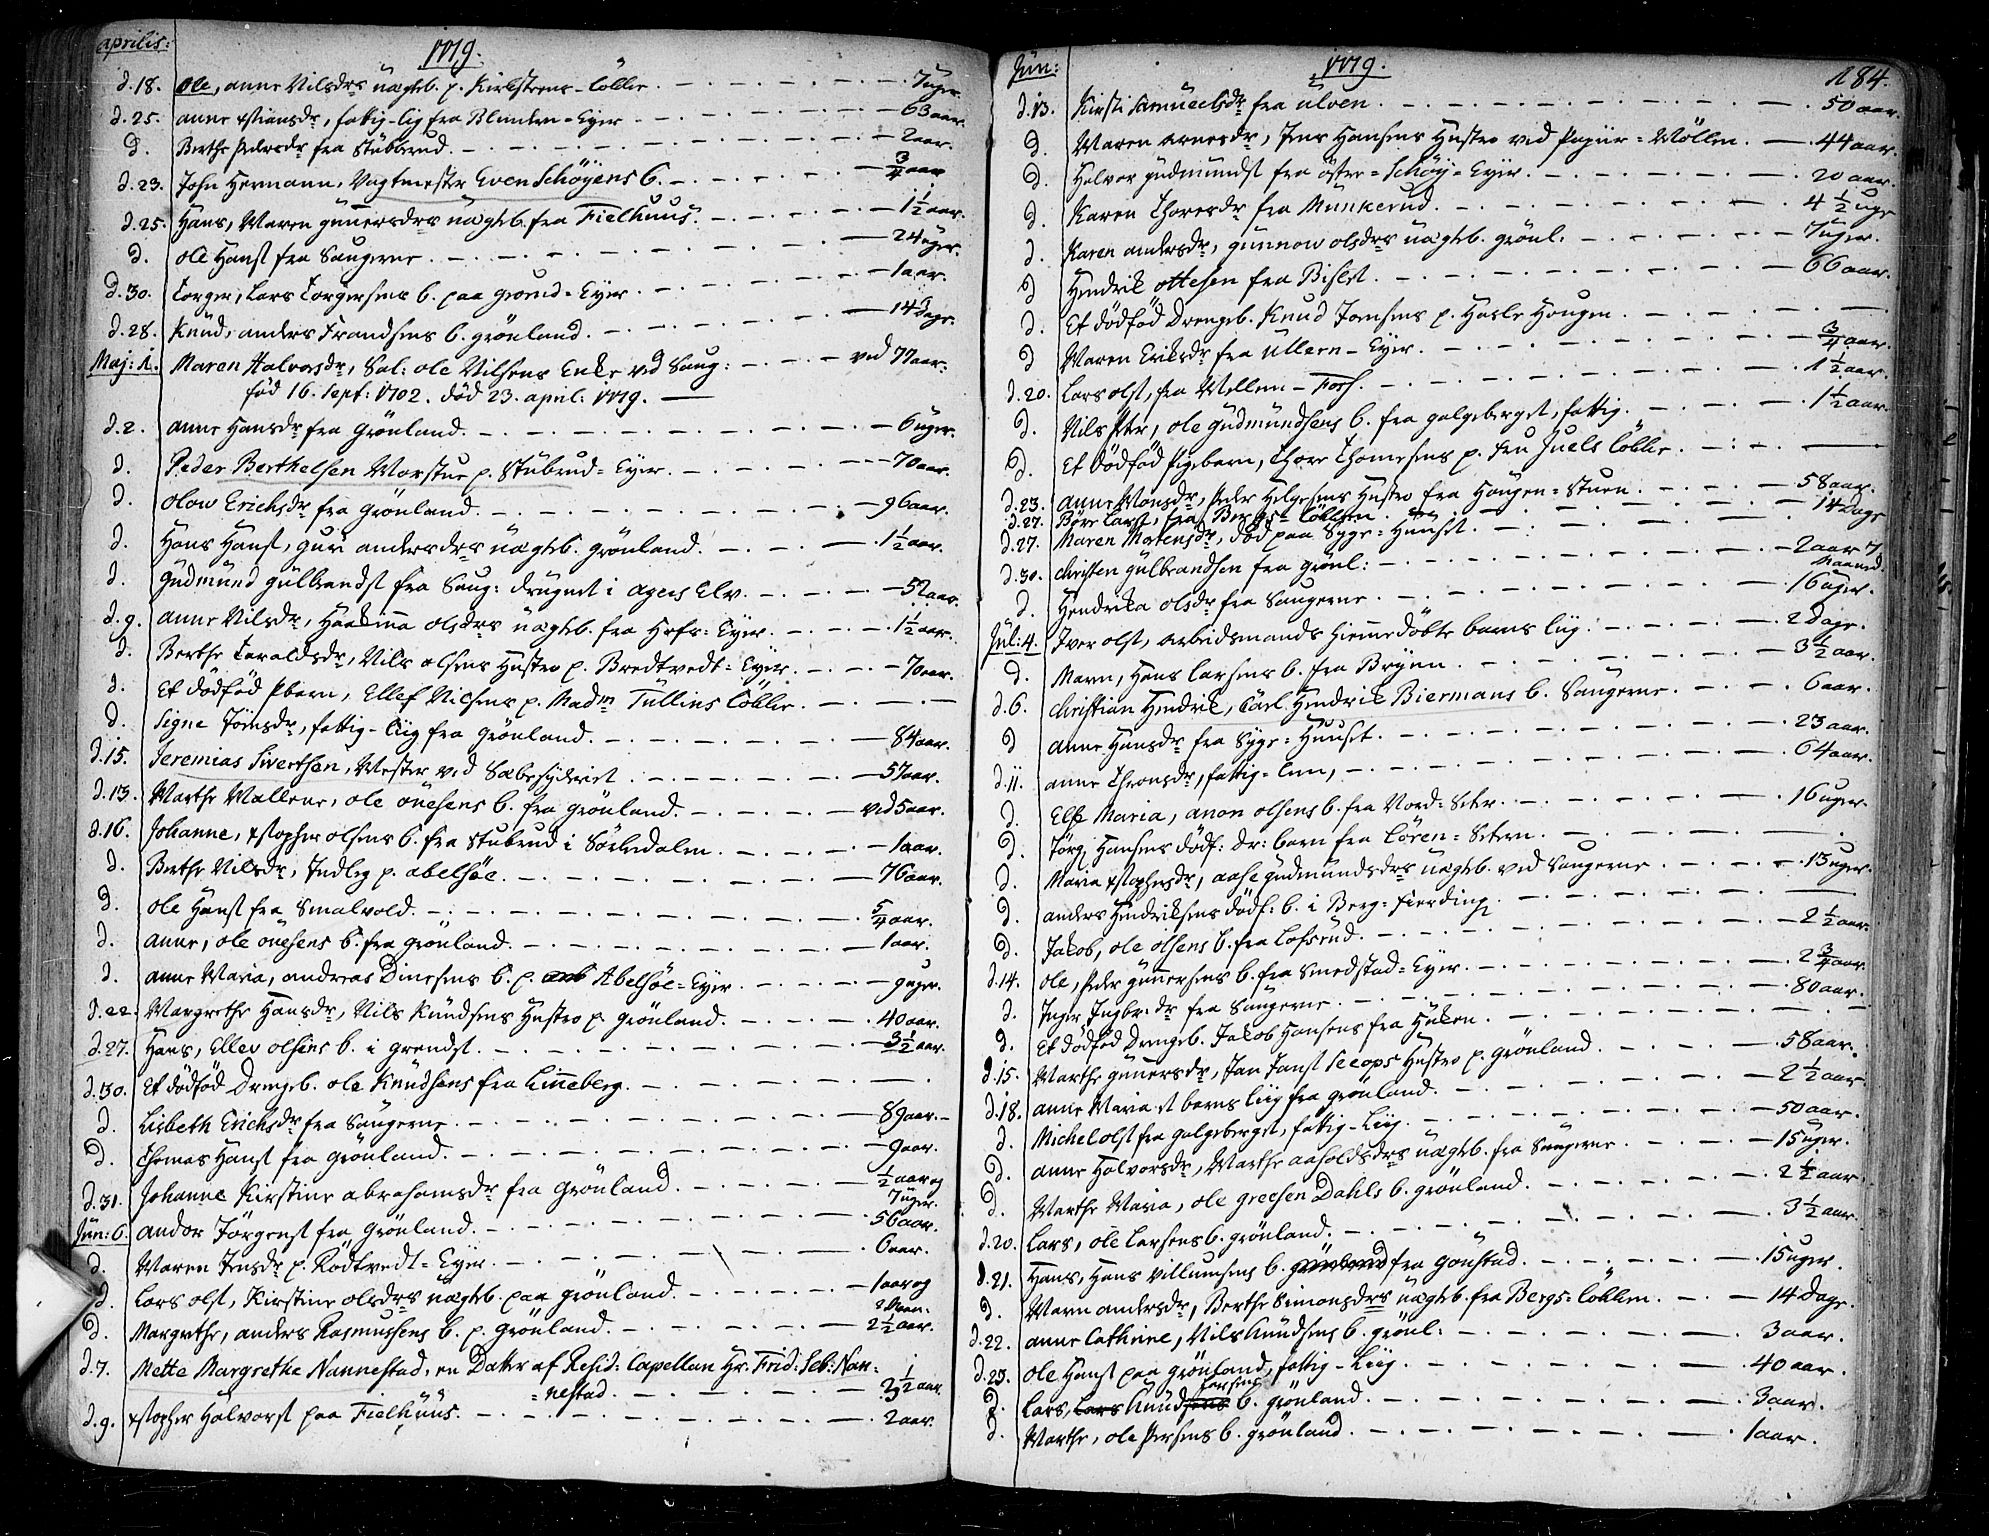 aprilis:
1779.
d. 18. Ole, anne Nilsdrs uægteb. p. Kirkstrens-Lökke. 7 uger.
d. 25. anne xstiansdr, fattig-lig fra Blindern-Eyer 63 aar.
d. Berthe Pedersdr fra Stubberud. 2 aar.
d. 23. John Hermann, Vagtmester Even Schöyens b. 3/4 aar
d. 25. Hans, Maren gunnersdrs uægteb. fra Fielhuus. 1 1/2 aar.
d. ole Hansl fra Saugerne. 24 uger.
d. 30. Torger, Lars Torgersens b. paa grorud-Eyer. 1 aar.
d. 28. Knud, anders Frandsens b. grönland. 14 dage.
Maj: 1. Maren Halvorsdr, Sal: ole Nilsens Enke ved Saug: ved 77 aar.
föd 16. Sept: 1702. död 23. april: 1779.
d. 2. anne Hansdr fra Grönland. 6 uger.
d. Peder Berthelsen Morstue p. Stubrud-Eyer. 70 aar.
d. olow Erichsdr fra Grönland. 96 aar.
d. Hans Hansl, guri andersdrs uægteb. grönland. 1 1/2 aar.
d. gudmund gulbrandsl fra Saug: drugnet i agers Elv. 52 aar.
d. 9. anne Nilsdr, Haagina olsdrs uægteb. fra Hofs-Eyer. 1 1/2 aar.
d. Berthe Taraldsdr, Nils olsens Hustro p. Bredtvedt-Eyer. 70 aar.
d. Et dödföd Pbarn, Ellef Nilsens p. Madm Tullins Lökke.
d. Signe Jönsdr, fattig-Liig fra Grönland. 84 aar.
d. 15. Jeremias Sivertsen, Mester ved Sæbesyderiet. 57 aar.
d. 13. Marthe Mallene, ole önesens b. fra grönland. ved 5 aar.
d. 16. Johanne, xstopher olsens b. fra Stubrud i Sörkedalen. 1 aar.
d. Berthe Nilsdr, Indleg p. abelsöe. 76 aar.
d. Ole Hansl fra Smalvold. 5/4 aar.
d. Anne, ole önesens b. fra grönland. 1 aar.
d. anne Maria, andreas Dinesens b. p. Abelsöe-Eyer. 9 uger.
d. 22. Margrethe Hansdr, Nils Knudsens Hustro p. grönland. 40 aar.
d. 27. Hans, Ellev olsens b. i grendsl. 3 1/2 aar.
d. 30. Et dödföd Drengeb. ole Knudsens fra Linneberg.
d. Lisbeth Erichsdr fra Saugerne. 89 aar.
d. Thomas Hansl fra Grönland. 9 aar.
d. 31. Johanne Kirstine abrahamsdr fra Grönland. 1/2 aar og 7 uger.
Jun: 6. andor Jörgensl fra grönland. 56 aar.
d. Maren Jensdr p. Rödtvedt-Eyer. 6 aar.
d. Lars olsl, Kirstine olsdrs uægteb. paa grönland. 1 aar og 2 Maan:
d. Margrethe, anders Rasmussens b. p. Grönland. 2 1/2 aar.
d. 7. Mette Margrethe Nannestad, en Datter af Resid: Capellan Hr. Frid: Seb: Nan-
=nestad. 3 1/2 aar.
d. 9. xstopher Halvorsl paa Fielhuus. 2 aar.
Jun:
1779.
184.
d. 13. Kirsti Samuelsdr fra ulven. 50 aar.
d. Maren Arnesdr, Jens Hansens Hustro ved Papiir-Möllen. 44 aar.
d. Halvor gudmundsl fra östre-Schöy-Eyer. 20 aar.
d. Karen Thoresdr fra Munkerud. 4 1/2 uge
d. Karen andersdr, gunnow olsdrs uægteb. grönl. 7 uger.
d. Hendrik ottesen fra Bislet. 66 aar.
d. Et dödföd Drengeb. Knud Jonsens p. Hasle Hougen.
d. Maren Eriksdr fra ullern-Eyer. 3/4 aar.
d. 20. Lars olsl, fra Mellem-Foss. 1 1/2 aar.
d. Nils Petr, ole gudmundsens b. fra galgeberget, fattig. 1 1/2 aar.
d. Et dödföd Pigebarn, Thore Thomesens p. Fru Juels Lökke.
d. 23. anne Monsdr, Peder Helgesens Hustro fra Hougen-Stuen. 58 aar.
d. 27. Börre Larsl, fra Bergs-Lökken. 14 Dage
d. 27. Maren Mortensdr, död paa Syge-Huuset.
d. 30. christen gulbrandsen fra grönl: 2 aar 7 Maaned.
d. Hendrika olsdr fra Saugerne. 16 uger.
Jul: 4. Iver olsl, arbeidsmands hiemmedöbte barns liig. 2 Dage.
d. Maren, Hans Larsens b. fra Brynn. 3 1/2 aar.
d. 6. christian Hendrik, Carl Hendrik Biermans b. Saugerne. 6 aar.
d. anne Hansdr fra Syge-Huuset. 23 aar.
d. 11. anne Thronsdr, fattig-lem, 64 aar.
d. Else Maria, anon olsens b. fra Nord-Seter. 16 uger.
d. Jörg. Hansens dödf: dr: barn fra Lören-Setern.
d. Maria xstophersdr, aase gudmundsdrs uægteb. ved Saugerne. 13 uger.
d. anders Hendriksens dödf: b. i Berg-Fierding.
d. Jakob, ole olsens b. fra Lofsrud. 2 1/2 aar.
d. 14. ole, Peder gunnersens b. fra Smedstad-Eyer. 2 3/4 aar.
d. Inger Ingbr: dr fra Saugerne. 80 aar.
d. Et dödföd Drengeb. Jakob Hansens fra Haken.
d. 15. Marthe gunnersdr, Jan Jansl Secops Hustro p. grönland. 58 aar.
d. 18. anne Maria et barns Liig fra grönland. 2 1/2 aar.
d. Michel olsl fra galgeberget, fattig-Liig. 50 aar.
d. anne Halvorsdr, Marthe aasoldsdrs uægteb. fra Saugerne. 15 uger.
d. Marthe Maria, ole greesen Dahls b. grönland. 2 1/2 aar.
d. 20. Lars, ole Larsens b. grönland. 3 1/2 aar.
d. 21. Hans, Hans villumsens b. fra gaustad. 15 uger.
d. Maren andersdr, Berthe Simonsdrs uægteb. fra Bergs-Lökken. 14 Dage.
d. 22. anne Cathrine, Nils Knudsens b. grönl: 3 aar.
d. 23. ole Hansl paa Grönland, fattig-Liig. 40 aar.
d. Lars, Knud Larsens b. grönland. 3 aar.
d. Marthe, ole Persens b. grönland. 1 aar.